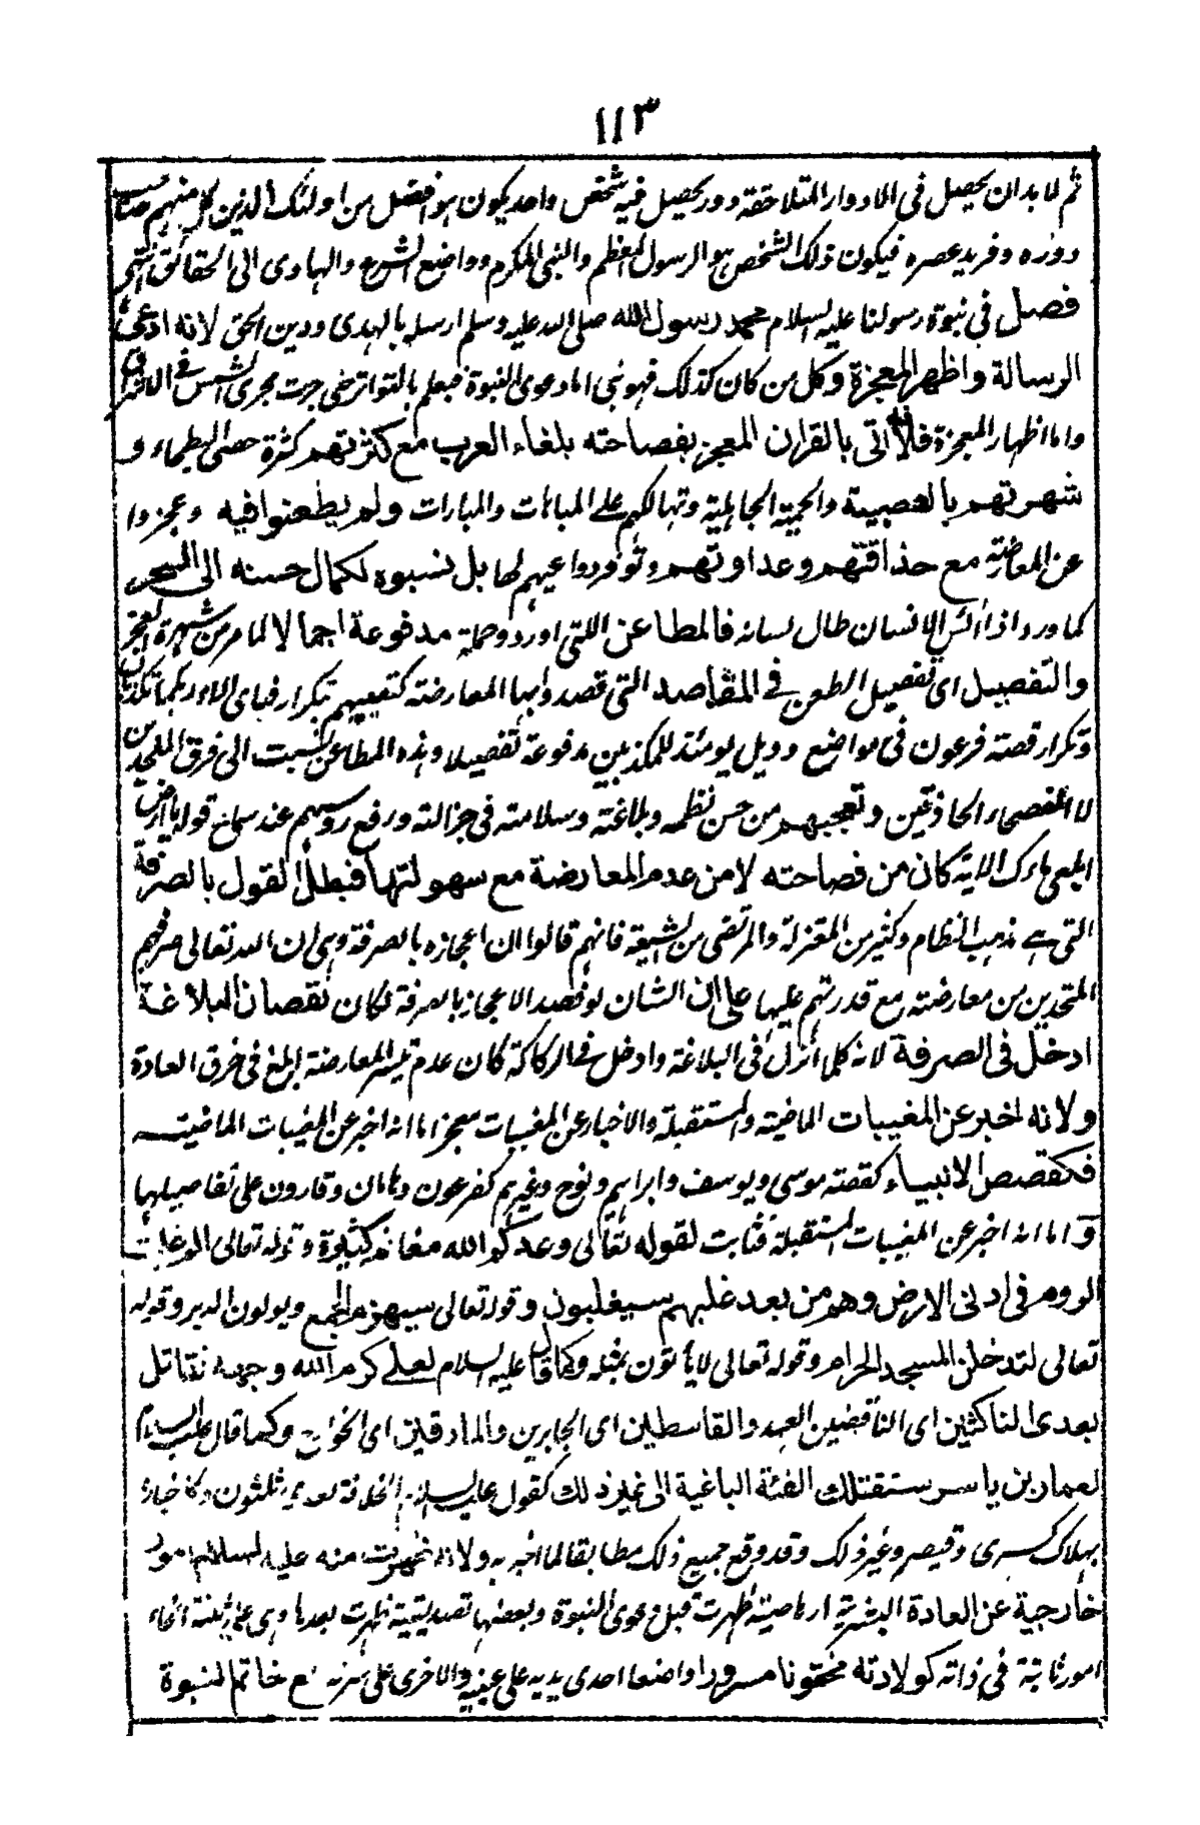 ١١٣
ثم لا بد ان يحصل في الادوار المتلاحقة دور يحصل فيه شخص واحد يكون هو افضل من اولئك الذين كل منهم صاحب
دوره و فريد عصره فيكون ذلك الشخص هو الرسول المعظم والنبى المكرم وواضع الشرع والهادى الى الحقائق انتهى
فصل فى نبوة رسولنا عليه السلام محمد رسول الله صلى الله عليه وسلم ارسله بالهدى ودين الحق لانه ادعى
الرسالة واظهر المعجزة وكل من كان كذلك فهو نبى اما دعوى النبوة فيعلم بالتواتر حتى جرت مجرى الشمس فى
واما اظهار المعجزة فلانه اتى بالقران المعجز بفصاحته بلغاء العرب مع كثرتهم كثرة حصى البطحاء و
شهرتهم بالعصبية والحمية الجاهلية وتهالكهم على المباهات والمبارات ولم يطعنوا فيه وعجزوا
عن المعارضة مع حذاقتهم وعداوتهم وتوفر دواعيهم لها بل نسبوه لكمال حسنه الى السحر
كما ورد اذا ائس الانسان طال لسانه فالمطاعن اللتى اوردو جملة مدفوعة اجمالا لما مر من شهرة العجز
والتفصيل اى تفصيل الطعن فى المقاصد التى قصدوا بها المعارضة كتعييبهم بتكرار فباى الاء ربكما تكذبان
وتكرار قصة فرعون فى مواضع وويل يومئذ للمكذبين مدفوعة تفصيلا وهذه المطاعن نسبت الى فرق الملحدين
لا الفصحاء الحاذقين وتعجبهم من حسن نظمه وبلاغته وسلاسته فى جزالته ورفع روسهم عند سماع قوله يا ارض
ابلعى ماءك الاية كان من فصاحته لا من عدم المعارضة مع سهولتها فبطل القول بالصرفة
التى هى مذهب النظام وكثير من المعتزلة والمرتضى من الشيعة فانهم قالوا ان اعجازه بالصرفة وهى ان الله تعالى صرفهم
المتحدين من معارضته مع قدرتهم عليها على ان الشان لو قصد الاعجاز بالصرفة لكان نقصان البلاغة
ادخل فى الصرفة لانه كلما انزل فى البلاغة وادخل فى الركاكة كان عدم تيسر المعارضة ابلغ فى خرق العادة
ولانه اخبر عن المغيبات الماضية والمستقبلة والاخبار عن المغيبات معجز اما انه اخبر عن المغيبات الماضية
فكقصص الانبياء كقصة موسى ويوسف وابراهيم ونوح وغيرهم كفرعون وهامان وقارون على تفاصيلها
و اما انه اخبر عن المغيبات المستقبلة فثابت لقوله تعالى وعدكم الله مغانم كثيرة وقوله تعالى الم غلبت
الروم فى ادنى الارض وهم من بعد غلبهم سيغلبون وقوله تعالى سيهزم الجمع ويولون الدبر وقوله
تعالى لتدخلن المسجد الحرام وقوله تعالى لا يأتون بمثله وكما قال عليه السلام لعلى كرم الله وجهه نقاتل
بعدى الناكثين اى الناقضين العهد والقاسطين اى الجابرين والمارقين اى الخوارج وكما قال عليه السلام
لعمار بن ياسر ستقتلك الفئة الباغية الى غير ذلك كقول عليه السلام الخلافة بعدى ثلثون وكاخباره
بهلاك كسرى وقيصر وغير ذلك وقد وقع جميع ذلك مطابقا لما اخبر به ولانه ظهرت منه عليه السلام امور
خارجية عن العادة البشرية ارهاصية ظهرت قبل دعوى النبوة وبعضها تصديقية ظهرت بعدها وهى على ثلثة انحاء
امور ثابتة فى ذاته كولادته مختونا مسرورا واضعا احدى يديه على عينيه والاخرى على سرته مع خاتم النبوة